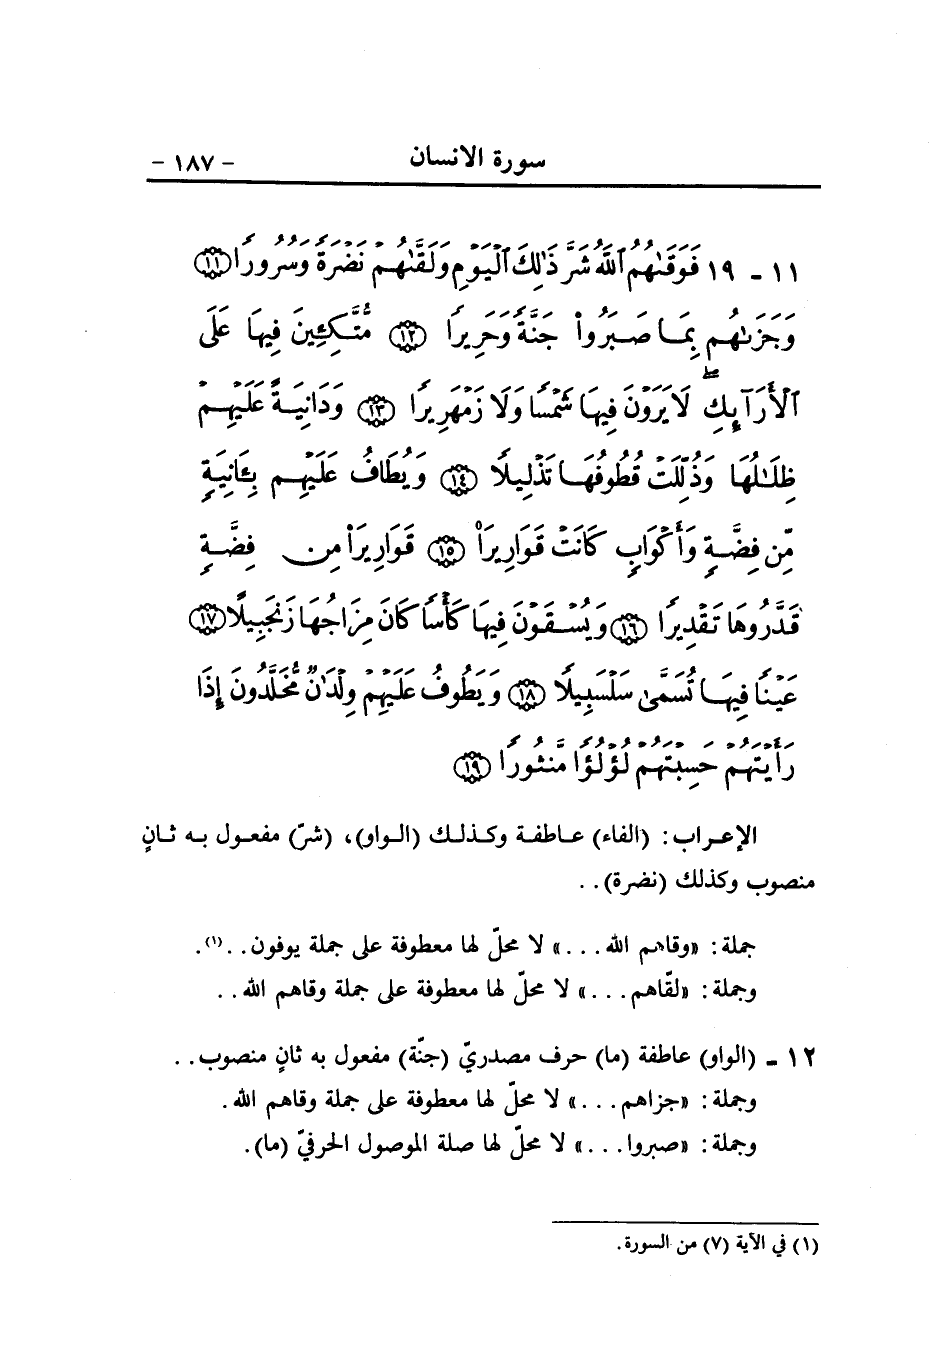 سورة الانسان - ١٨٧ -
١١ - ١٩ فَوَقَىٰهُمُ ٱللَّهُ شَرَّ ذَٰلِكَ ٱلْيَوْمِ وَلَقَّىٰهُمْ نَضْرَةً وَسُرُورًا ١١
وَجَزَىٰهُم بِمَا صَبَرُوا۟ جَنَّةً وَحَرِيرًا ١٢ مُّتَّكِـِٔينَ فِيهَا عَلَى
ٱلْأَرَآئِكِ ۖ لَا يَرَوْنَ فِيهَا شَمْسًا وَلَا زَمْهَرِيرًا ١٣ وَدَانِيَةً عَلَيْهِمْ
ظِلَـٰلُهَا وَذُلِّلَتْ قُطُوفُهَا تَذْلِيلًا ١٤ وَيُطَافُ عَلَيْهِم بِـَٔانِيَةٍ
مِّن فِضَّةٍ وَأَكْوَابٍ كَانَتْ قَوَارِيرَا۠ ١٥ قَوَارِيرَا۟ مِن فِضَّةٍ
قَدَّرُوهَا تَقْدِيرًا ١٦ وَيُسْقَوْنَ فِيهَا كَأْسًا كَانَ مِزَاجُهَا زَنجَبِيلًا ١٧
عَيْنًا فِيهَا تُسَمَّىٰ سَلْسَبِيلًا ١٨ وَيَطُوفُ عَلَيْهِمْ وِلْدَٰنٌ مُّخَلَّدُونَ إِذَا
رَأَيْتَهُمْ حَسِبْتَهُمْ لُؤْلُؤًا مَّنثُورًا ١٩
الإعراب: (الفاء) عاطفة وكذلك (الواو)، (شرّ) مفعول به ثانٍ
منصوب وكذلك (نضرة)..
جملة: «وقاهم الله...» لا محلّ لها معطوفة على جملة يوفون..(١).
وجملة: «لقّاهم...» لا محلّ لها معطوفة على جملة وقاهم الله..
١٢ - (الواو) عاطفة (ما) حرف مصدريّ (جنّة) مفعول به ثانٍ منصوب..
وجملة: «جزاهم...» لا محلّ لها معطوفة على جملة وقاهم الله.
وجملة: «صبروا...» لا محلّ لها صلة الموصول الحرفيّ (ما).
(١) في الآية (٧) من السورة.